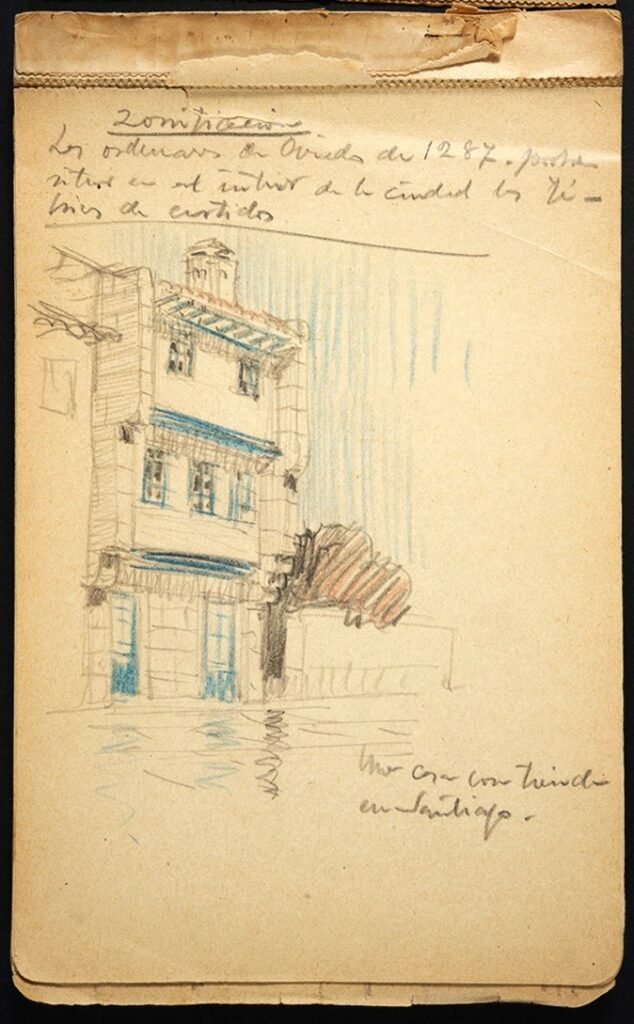 Zonificacion
Las ordenanzas de Oviedo de 1287. prohibe
situar en el interior de la ciudad las fá-
bricas de curtidos
Una casa con tienda
en Santiago.